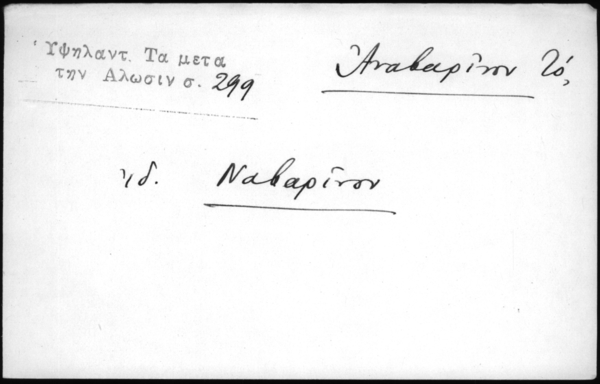 Ὑψηλαντ. Τα μετα
την Αλωσιν σ. 299
Ἀναβαρῖνον τό,
ἰδ. Ναβαρῖνον